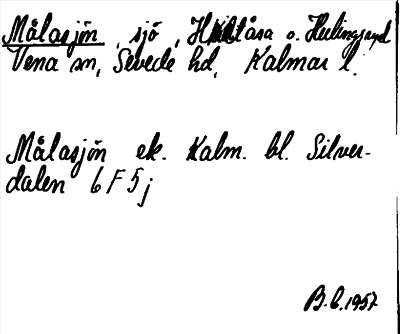 Målasjön, sjö, Hultåsa o. Herlingsryd
Vena sn, Sevede hd, Kalmar l.
Målasjön ek. Kalm. bl. Silver-
dalen 6 F 5 j
B.L. 1957